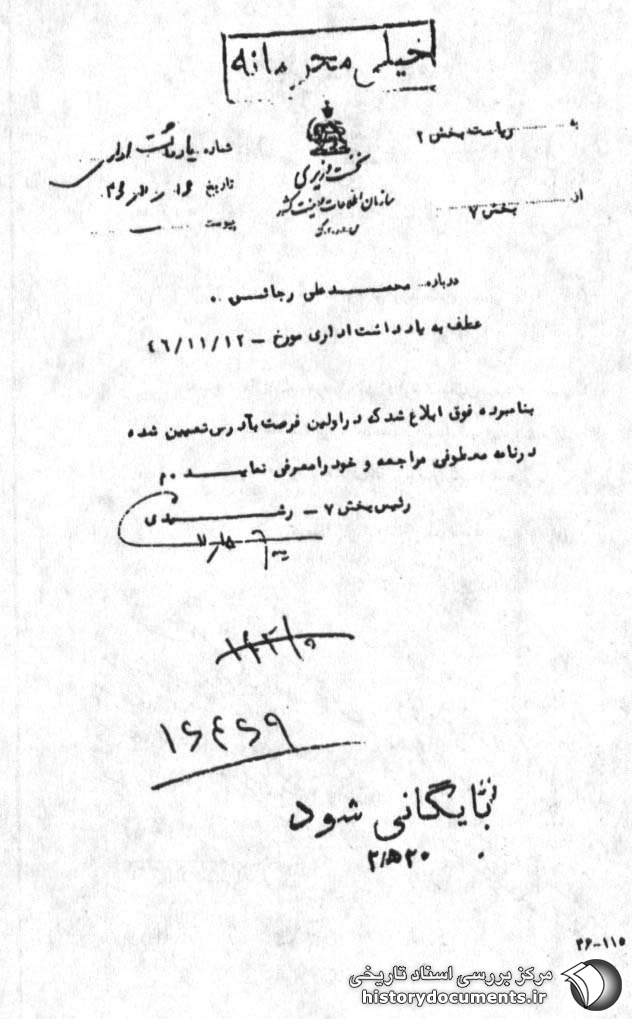 خیلی محرمانه
به ریاست بخش ۲
از بخش ۷
نخست وزیری
سازمان اطلاعات و امنیت کشور
س.ا.و.ا.ک
شماره یادداشت اداری
تاریخ
پیوست —
درباره محمد علی رجائی ۰
عطف به یادداشت اداری مورخ – ٤٦/١١/١٢
بنامبرده فوق ابلاغ شد که در اولین فرصت بآدرس تعیین شده
در نامه معطوفی مراجعه و خود را معرفی نماید ۰م
رئیس بخش ۷ – رشیدی
١٤٤٢٩
بایگانی شود
۲/۵۲۰
۴۶-۱۱۵
مرکز بررسی اسناد تاریخی
historydocuments.ir